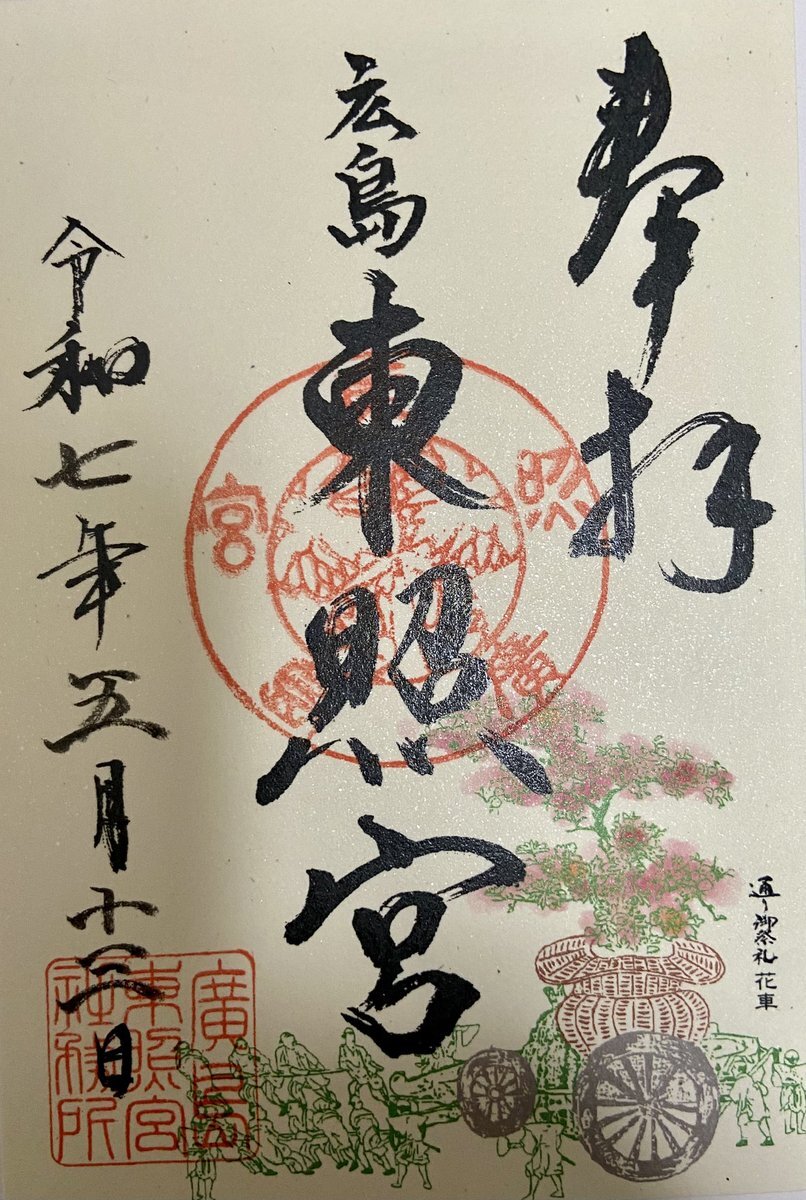 奉拝
広島
東照宮
令和七年五月十三日
通り御祭礼 花車
廣島
東照宮
社務所